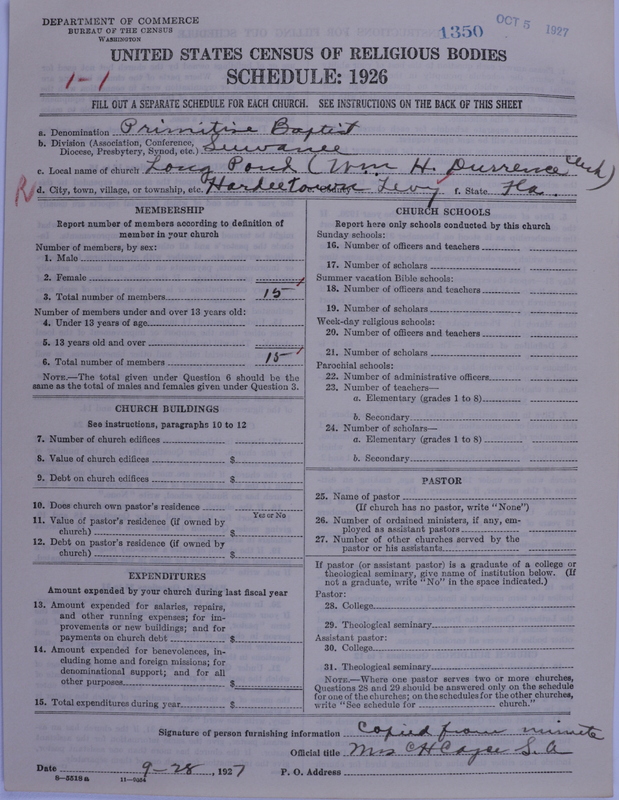 DEPARTMENT OF COMMERCE
BUREAU OF THE CENSUS
WASHINGTON
1350 OCT 5 1927
UNITED STATES CENSUS OF RELIGIOUS BODIES
1-1 SCHEDULE: 1926
FILL OUT A SEPARATE SCHEDULE FOR EACH CHURCH. SEE INSTRUCTIONS ON THE BACK OF THIS SHEET
a. Denomination Primitive Baptist
b. Division (Association, Conference, Diocese, Presbytery, Synod, etc.) Suwanee
c. Local name of church Long Pond (Wm H. Durrence Clerk)
R d. City, town, village, or township, etc. Hardeetown Levy f. State Fla.
MEMBERSHIP
Report number of members according to definition of
member in your church
Number of members, by sex:
1. Male
2. Female
3. Total number of members 15
Number of members under and over 13 years old:
4. Under 13 years of age
5. 13 years old and over
6. Total number of members 15
NOTE.—The total given under Question 6 should be the
same as the total of males and females given under Question 3.
CHURCH BUILDINGS
See instructions, paragraphs 10 to 12
7. Number of church edifices
8. Value of church edifices $
9. Debt on church edifices $
10. Does church own pastor's residence
Yes or No
11. Value of pastor's residence (if owned by
church) $
12. Debt on pastor's residence (if owned by
church) $
EXPENDITURES
Amount expended by your church during last fiscal year
13. Amount expended for salaries, repairs,
and other running expenses; for im-
provements or new buildings; and for
payments on church debt $
14. Amount expended for benevolences, in-
cluding home and foreign missions; for
denominational support; and for all
other purposes $
15. Total expenditures during year $
CHURCH SCHOOLS
Report here only schools conducted by this church
Sunday schools:
16. Number of officers and teachers
17. Number of scholars
Summer vacation Bible schools:
18. Number of officers and teachers
19. Number of scholars
Week-day religious schools:
20. Number of officers and teachers
21. Number of scholars
Parochial schools:
22. Number of administrative officers
23. Number of teachers—
a. Elementary (grades 1 to 8)
b. Secondary
24. Number of scholars—
a. Elementary (grades 1 to 8)
b. Secondary
PASTOR
25. Name of pastor
(If church has no pastor, write "None")
26. Number of ordained ministers, if any, em-
ployed as assistant pastors
27. Number of other churches served by the
pastor or his assistants
If pastor (or assistant pastor) is a graduate of a college or
theological seminary, give name of institution below. (If
not a graduate, write "No" in the space indicated.)
Pastor:
28. College
29. Theological seminary
Assistant pastor:
30. College
31. Theological seminary
NOTE.—Where one pastor serves two or more churches,
Questions 28 and 29 should be answered only on the schedule
for one of the churches; on the schedules for the other churches,
write "See schedule for church."
Signature of person furnishing information Copied from minute
Official title Mrs C H Cayce S. A
Date 9-28, 1927 P. O. Address
8-5518a 11-5034